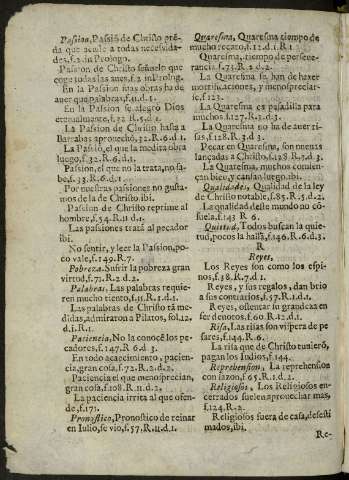 Passion, Passiõ de Christo prẽ-
da que acude a todas necessida-
des, f.2. in Prologo.
Passion de Christo señuelo que
coge todas las aues, f.2. in Prolog.
En la Passion mas obras ha de
auer que palabras, f.11.d.1.
En Passion se alegrò Dios
eternalmente, f.32. R.5.d.1.
La Passion de Christo hasta a
Barrabas aprouechò, 32.R.6.d.1.
La Passiõ, el que la medita obra
luego, f.32.R.6.d.1.
Passion, el que no la trata, no sa-
be, f.33.R.6.d.1.
Por nuestras passiones no gusta-
mos de la de Christo. ibi.
Passion de Christo reprime al
hombre, f.54.R.11.d.1.
Las passiones trata al pecador
ibi.
No sentir, y leer la Passion, po-
co vale, f.149.R.7.
Pobreza. Sufrir la pobreza gran
virtud, f.71.R.2.d.2.
Palabras. Las palabras requie-
ren mucho tiento, f.11.R.1.d.1.
Las palabras de Christo tã me-
didas, admiraron a Pilatos, fol.12.
d.1.R.1.
Paciencia, No la conocẽ los pe-
cadores, f.147.R.6.d.3.
En todo acaecimiento, pacien-
cia, gran cosa, f.72.R.2.d.2.
Paciencia el que menosprecian,
gran cosa, f.108.R.11.d.2.
La paciencia irrita al que ofen-
de, f.171.
Pronostico, Pronostico de reinar
en Iulio, se vio, f.57.R.11.d.1.
Quaresma, Quaresma tiempo de
mucho recato, f.12.d.1.R.1.
Quaresma, tiempo de perseue-
rancia, f.73.R.2.d.2.
La Quaresma se han de hazer
mortificaciones, y menospreciar-
se, f.123.
La Quaresma es pesadilla para
muchos, f.127.R.3.d.3.
La Quaresma no ha de auer ri-
sas, f.128.R.3.d.3.
Pecar en Quaresma, son nueuas
lançadas a Christo, f.128.R.3.d.3.
La Quaresma, muchos comien-
çan bien, y cansan luego. ibi.
Qualidades, Qualidad de la ley
de Christo notable, f.85.R.5.d.2.
La qualidad deste mundo no cõ-
suela, f.143 R.6.
Quietud, Todos buscan la quie-
tud, pocos la hallã, f.146.R.6.d.3.
R
Reyes,
Los Reyes son como los espi-
nos, f.38.R.7.d.1.
Reyes, y sus regalos, dan brio
a sus contrarios, f.57.R.1.d.1.
Reyes, ostentar su grandeza en
ser denotos, f.60.R.12.d.1.
Risa, Las risas son vispera de pe-
sares, f.144.R.6.
La risa que de Christo tuuierõ,
pagan los Indios, f.144.
Reprehension, La reprehension
con razon, f.95.R.1.d.2.
Religiosos, Los Religiosos en-
cerrados suelen aprouechar mas,
f.124.R.2.
Religiosos fuera de casa, desesti
mados, ibi.
Re-